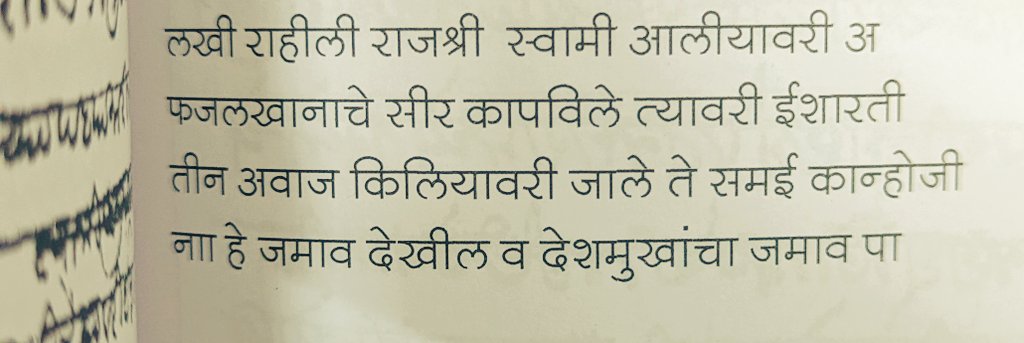 लखी राहीली राजश्री स्वामी आलीयावरी अ
फजलखानाचे सीर कापविले त्यावरी ईशारती
तीन अवाज किलियावरी जाले ते समई कान्होजी
नाा हे जमाव देखील व देशमुखांचा जमाव पा